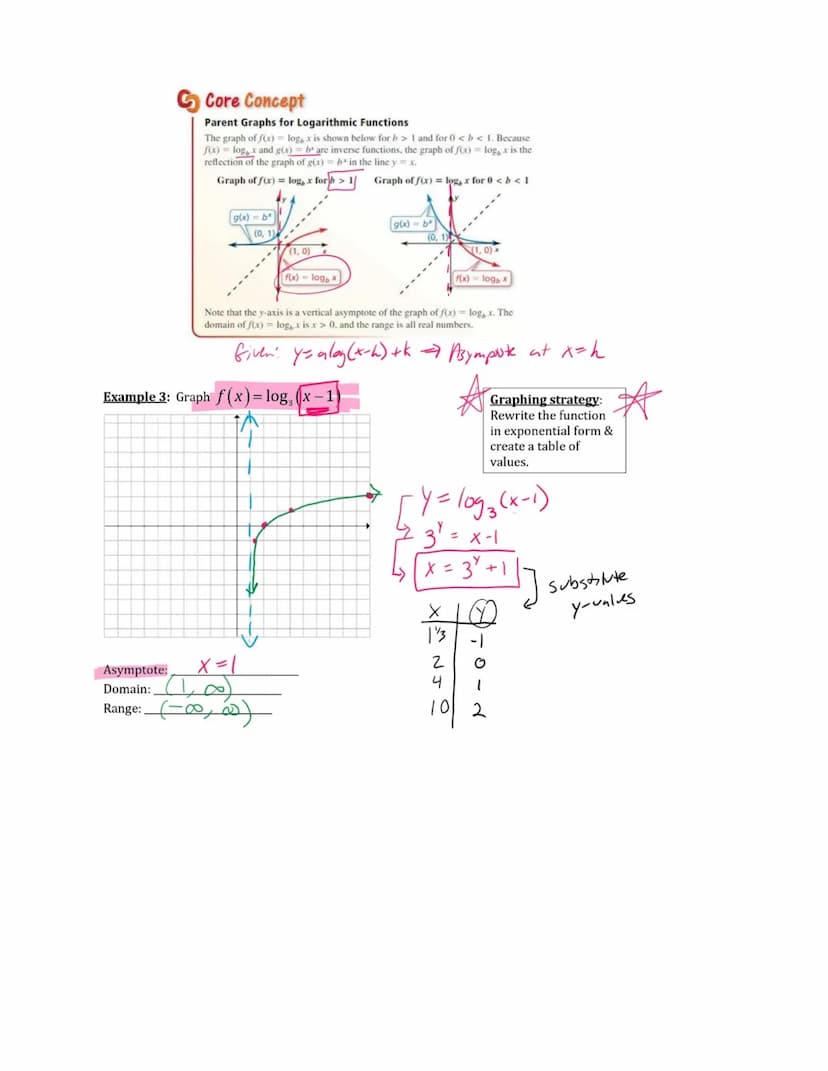 Core Concept
Parent Graphs for Logarithmic Functions
The graph of f(x) = log_b x is shown below for b > 1 and for 0 < b < 1. Because
f(x) = log_b x and g(x) = b^x are inverse functions, the graph of f(x) = log_b x is the
reflection of the graph of g(x) = b^x in the line y = x.
Graph of f(x) = log_b x for b > 1 Graph of f(x) = log_b x for 0 < b < 1
y
g(x) = b^x
(0, 1)
(1, 0)
x
f(x) = log_b x
y
g(x) = b^x
(0, 1)
(1, 0)
x
f(x) = log_b x
Note that the y-axis is a vertical asymptote of the graph of f(x) = log_b x. The
domain of f(x) = log_b x is x > 0, and the range is all real numbers.
Given: y = a log(x-h) + k → Asymptote at x = h
Example 3: Graph f(x) = log_3(x − 1)
Graphing strategy:
Rewrite the function
in exponential form &
create a table of
values.
y = log_3(x-1)
3^y = x-1
x = 3^y + 1
substitute
y-values
X Y
1 1/3 -1
2 0
4 1
10 2
Asymptote: x = 1
Domain: (1, ∞)
Range: (-∞, ∞)